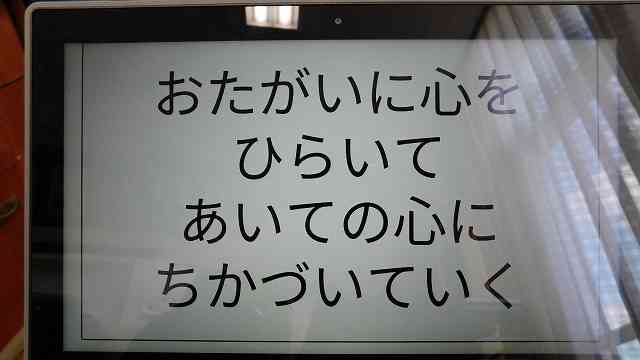 おたがいに心を
ひらいて
あいての心に
ちかづいていく